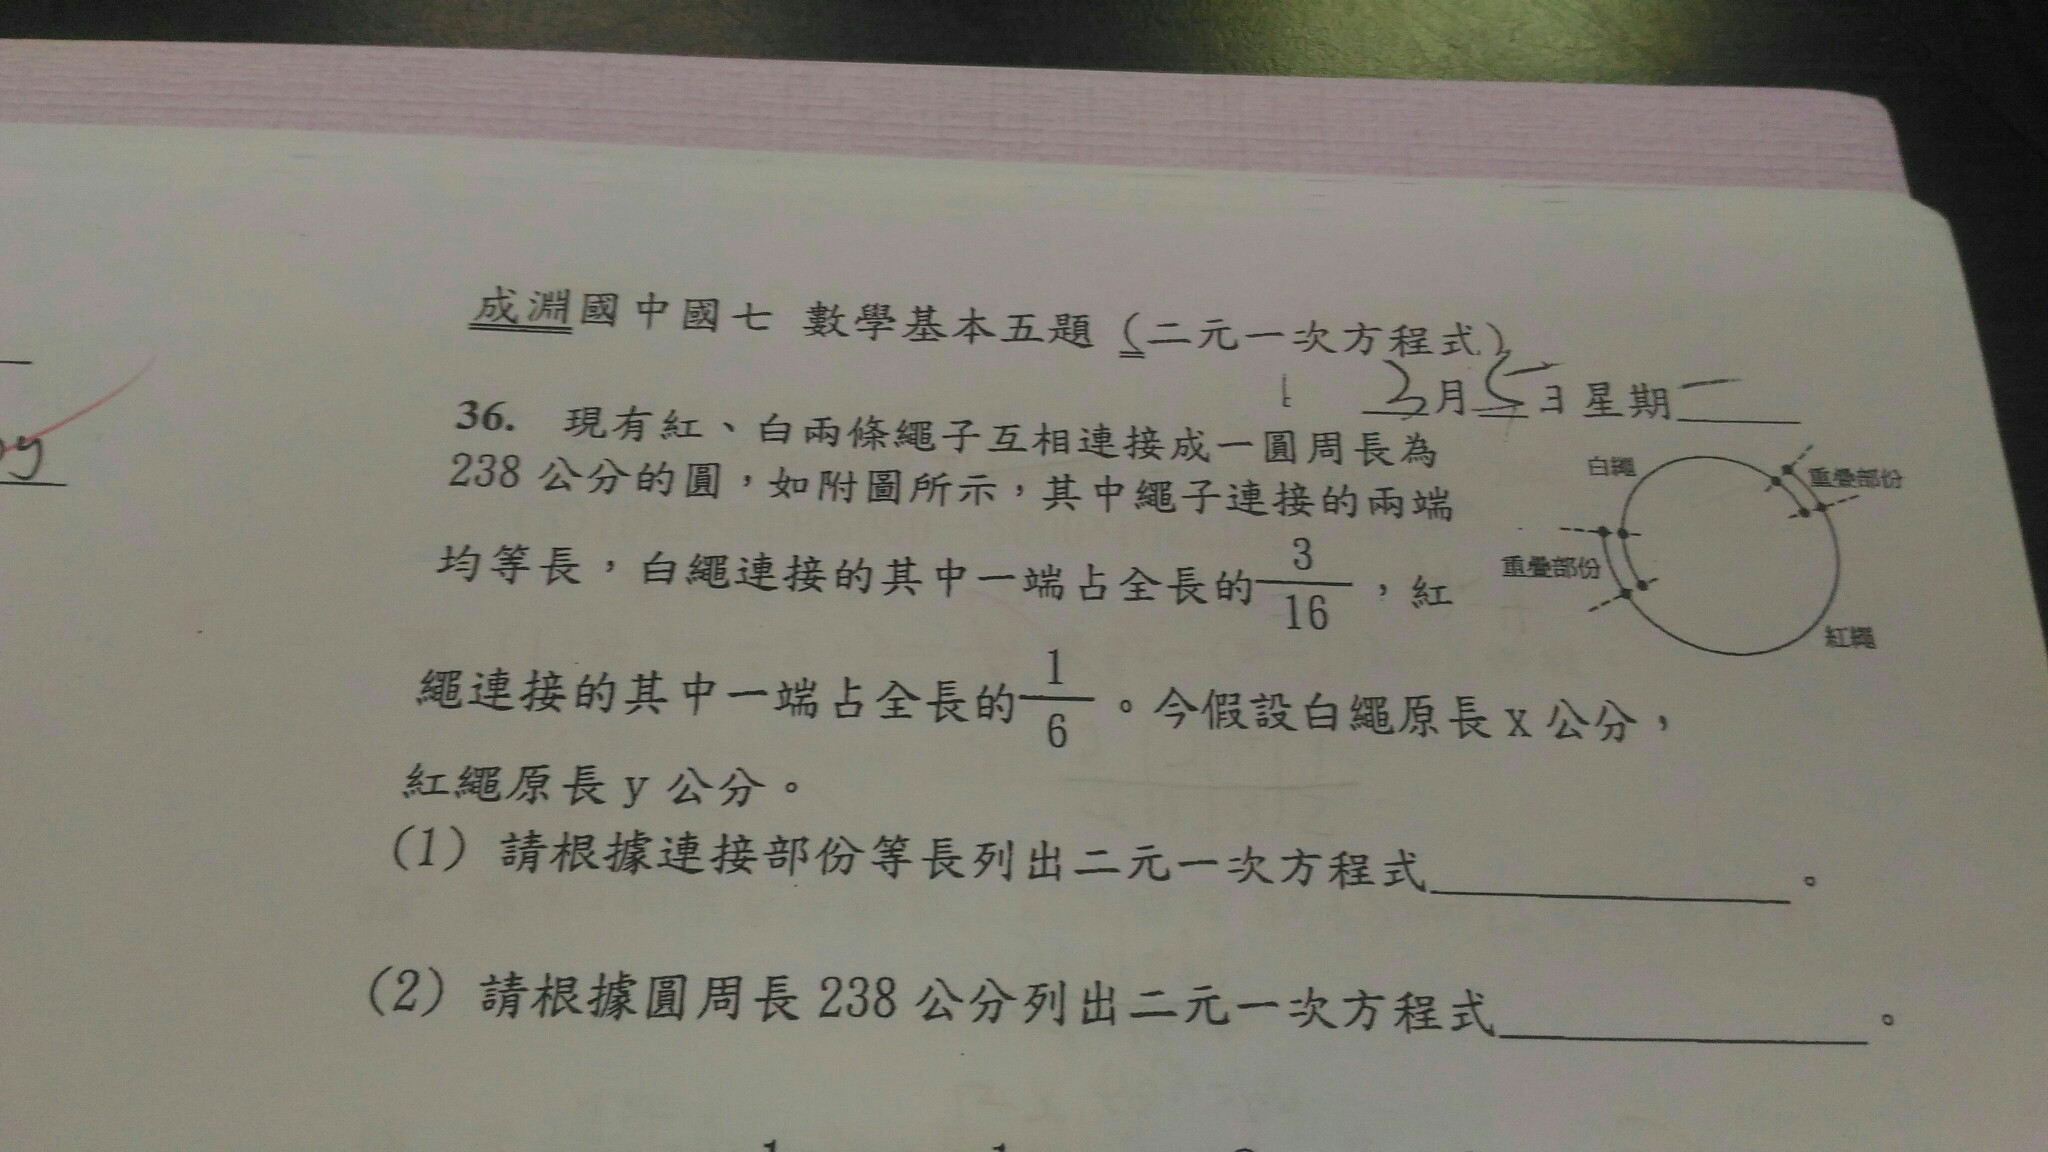 成淵國中國七 數學基本五題(二元一次方程式)
3月5日星期一
36. 現有紅、白兩條繩子互相連接成一圓周長為
238公分的圓,如附圖所示,其中繩子連接的兩端
均等長,白繩連接的其中一端占全長的3/16,紅
繩連接的其中一端占全長的1/6。今假設白繩原長x公分,
紅繩原長y公分。
白繩
重疊部份
重疊部份
紅繩
(1) 請根據連接部份等長列出二元一次方程式____________。
(2) 請根據圓周長238公分列出二元一次方程式____________。
y